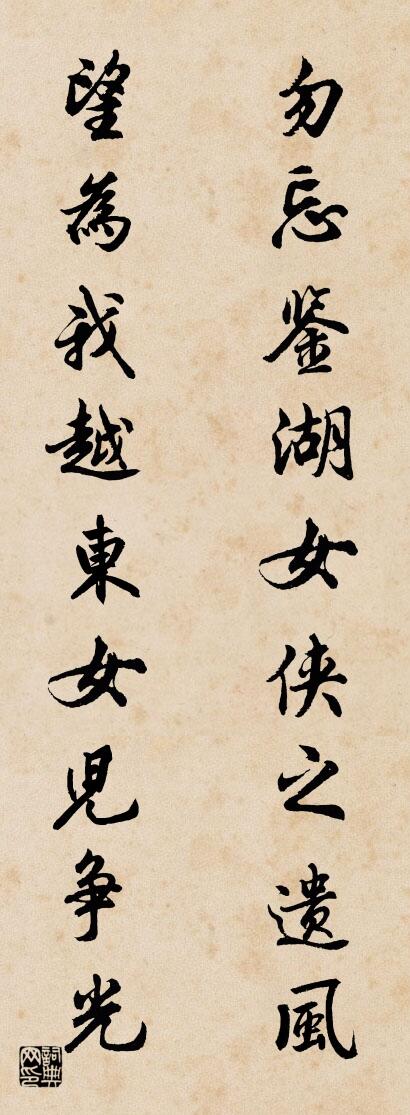 勿忘鉴湖女侠之遗風
望為我越東女児争光
詞典网印